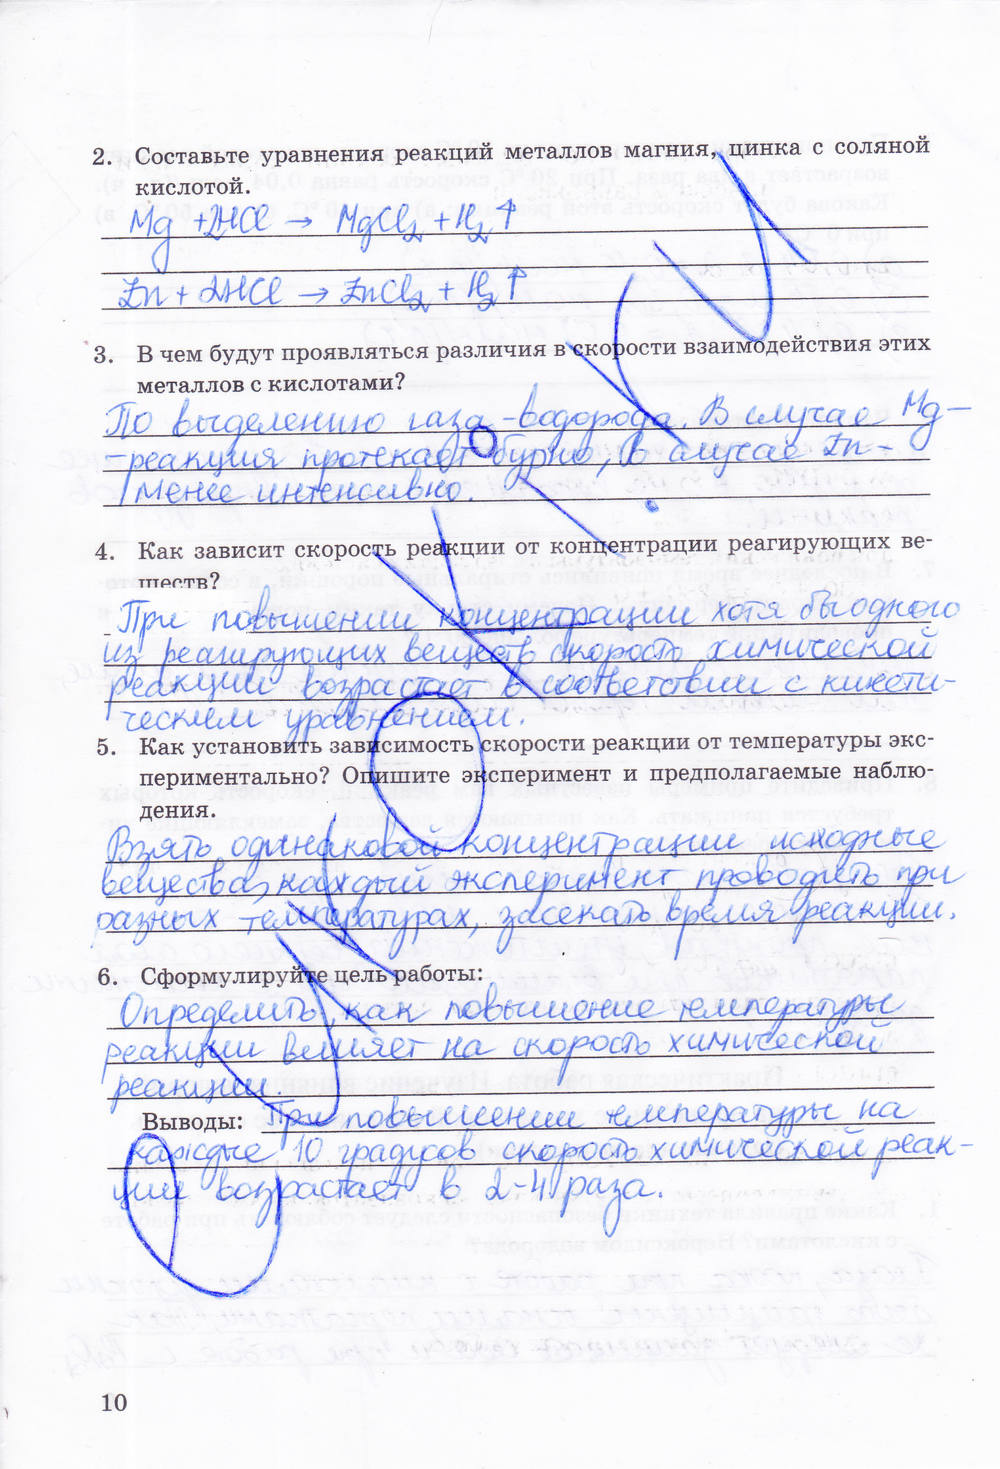 2. Составьте уравнения реакций металлов магния, цинка с соляной
кислотой.
Mg + 2HCl → MgCl₂ + H₂↑
Zn + 2HCl → ZnCl₂ + H₂↑
3. В чем будут проявляться различия в скорости взаимодействия этих
металлов с кислотами?
По выделению газа - водорода. В случае Mg -
- реакция протекает бурно, в случае Zn -
- менее интенсивно.
4. Как зависит скорость реакции от концентрации реагирующих ве-
ществ?
При повышении концентрации хотя бы одного
из реагирующих веществ скорость химической
реакции возрастает в соответствии с кинети-
ческим уравнением.
5. Как установить зависимость скорости реакции от температуры экс-
периментально? Опишите эксперимент и предполагаемые наблю-
дения.
Взять одинаковой концентрации исходные
вещества, каждый эксперимент проводить при
разных температурах, засекать время реакции.
6. Сформулируйте цель работы:
Определить, как повышение температуры
реакции влияет на скорость химической
реакции.
Выводы: При повышении температуры на
каждые 10 градусов скорость химической реак-
ции возрастает в 2-4 раза.
10